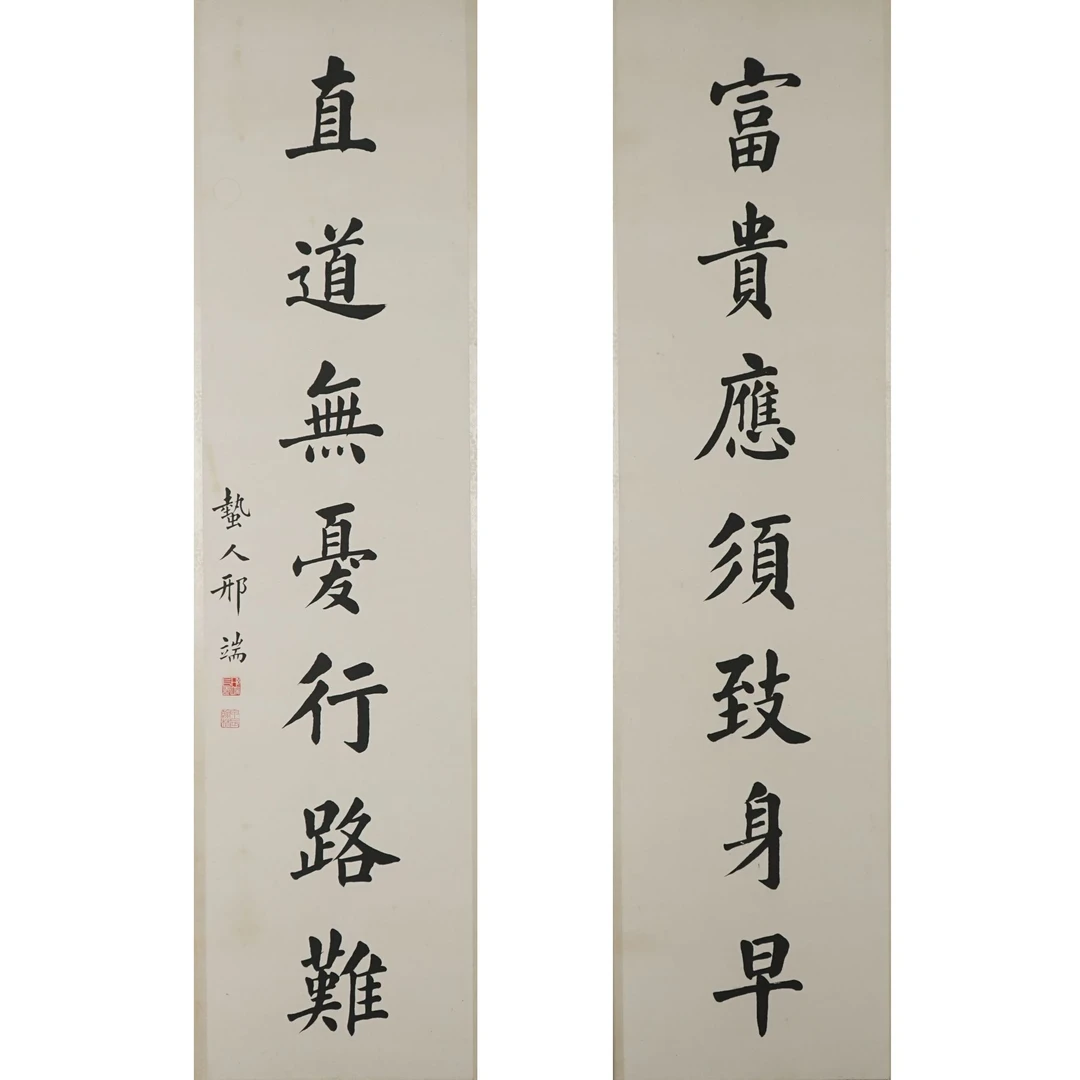 富貴應須致身早
直道無憂行路難
蟄人邢端